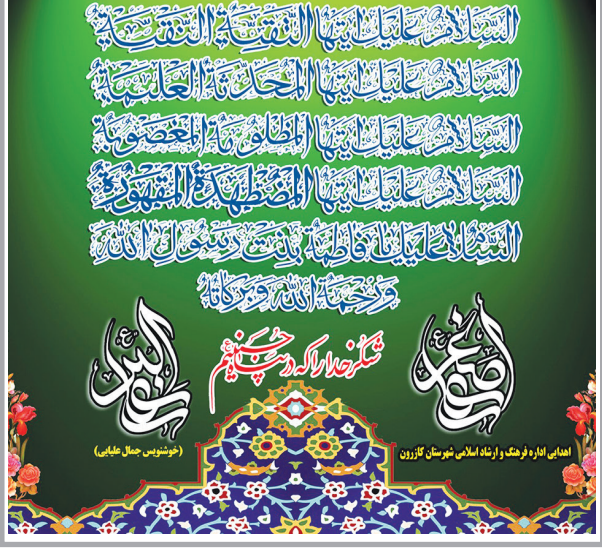 السلام عليك ايتها التقية النقية
السلام عليك ايتها المحدثة العليمة
السلام عليك ايتها المظلومة المغصوبة
السلام عليك ايتها المضطهدة المقهورة
السلام عليك يا فاطمة بنت رسول الله
ورحمة الله وبركاته
شکر خدا را که در پناه حسینم
علی اصغر
علی اکبر
اهدایی اداره فرهنگ و ارشاد اسلامی شهرستان کازرون
(خوشنویس جمال علیایی)